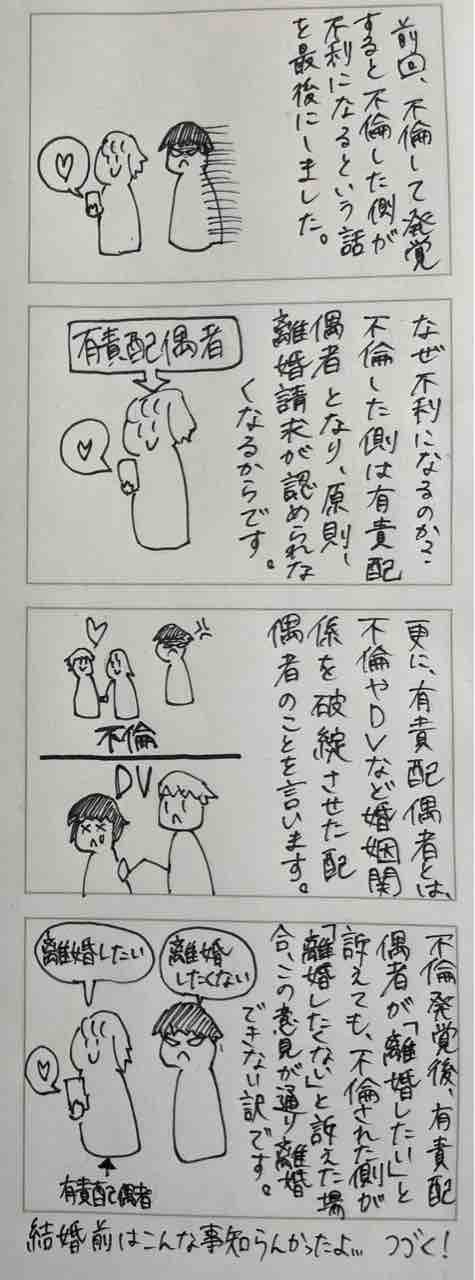 前回、不倫して発覚
すると不倫した側が
不利になるという話
を最後にしました。
なぜ不利になるのか?
不倫した側は有責配
偶者となり、原則、
離婚請求が認められな
くなるからです。
有責配偶者
更に、有責配偶者とは、
不倫やDVなど婚姻関
係を破綻させた配
偶者のことを言います。
不倫
DV
不倫発覚後、有責配
偶者が「離婚したい」と
訴えても、不倫された側が
「離婚したくない」と訴えた場
合、この意見が通り離婚
できない訳です。
離婚
したくない
離婚したい
有責配偶者
結婚前はこんな事知らんかったよ… つづく!